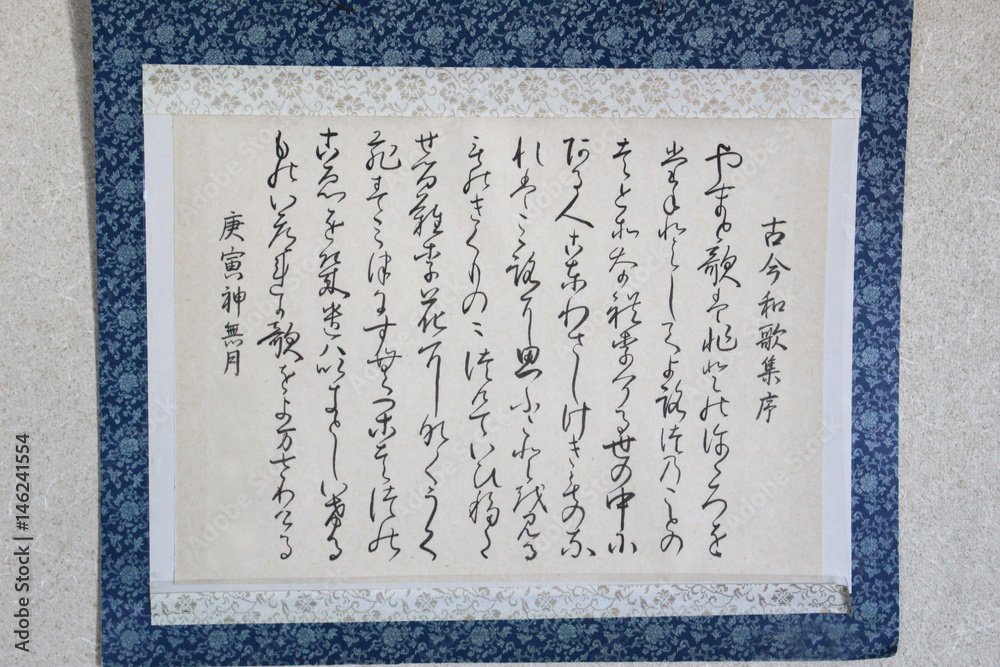 古今和歌集序
やまと歌はひとのこゝろを
たねとしてよろつのことの
はとそなれりける世の中に
ある人ことわさしけきものな
れはこゝろに思ふことを見る
ものきくものにつけていひ
せるなり花になくうく
ひすみつにすむかはつの
こゑをきけはいきとしいける
ものいつれか歌をよまさりける
庚寅神無月
Adobe Stock | #146241554